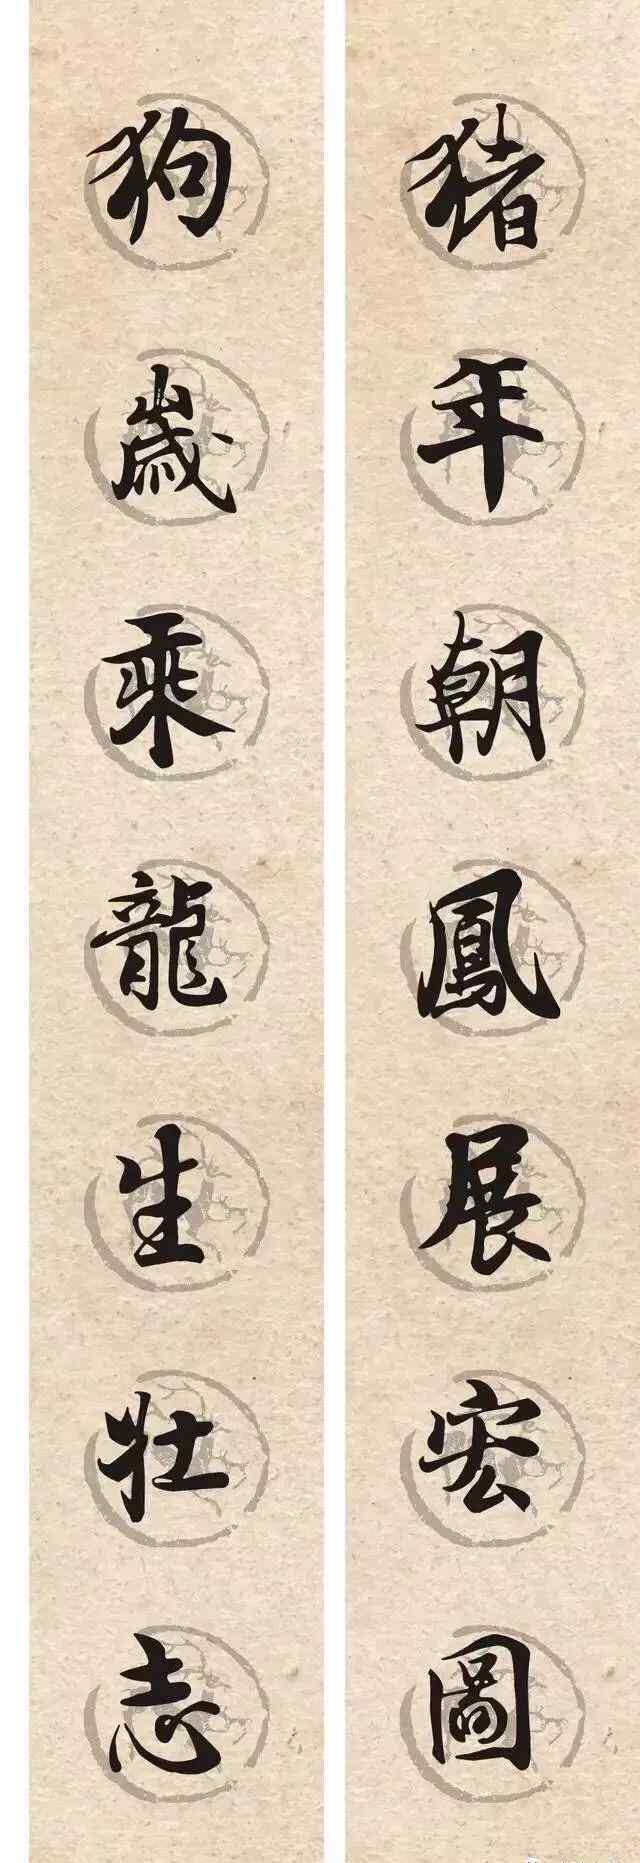 猪年朝鳳展宏圖
狗歲乘龍生壯志